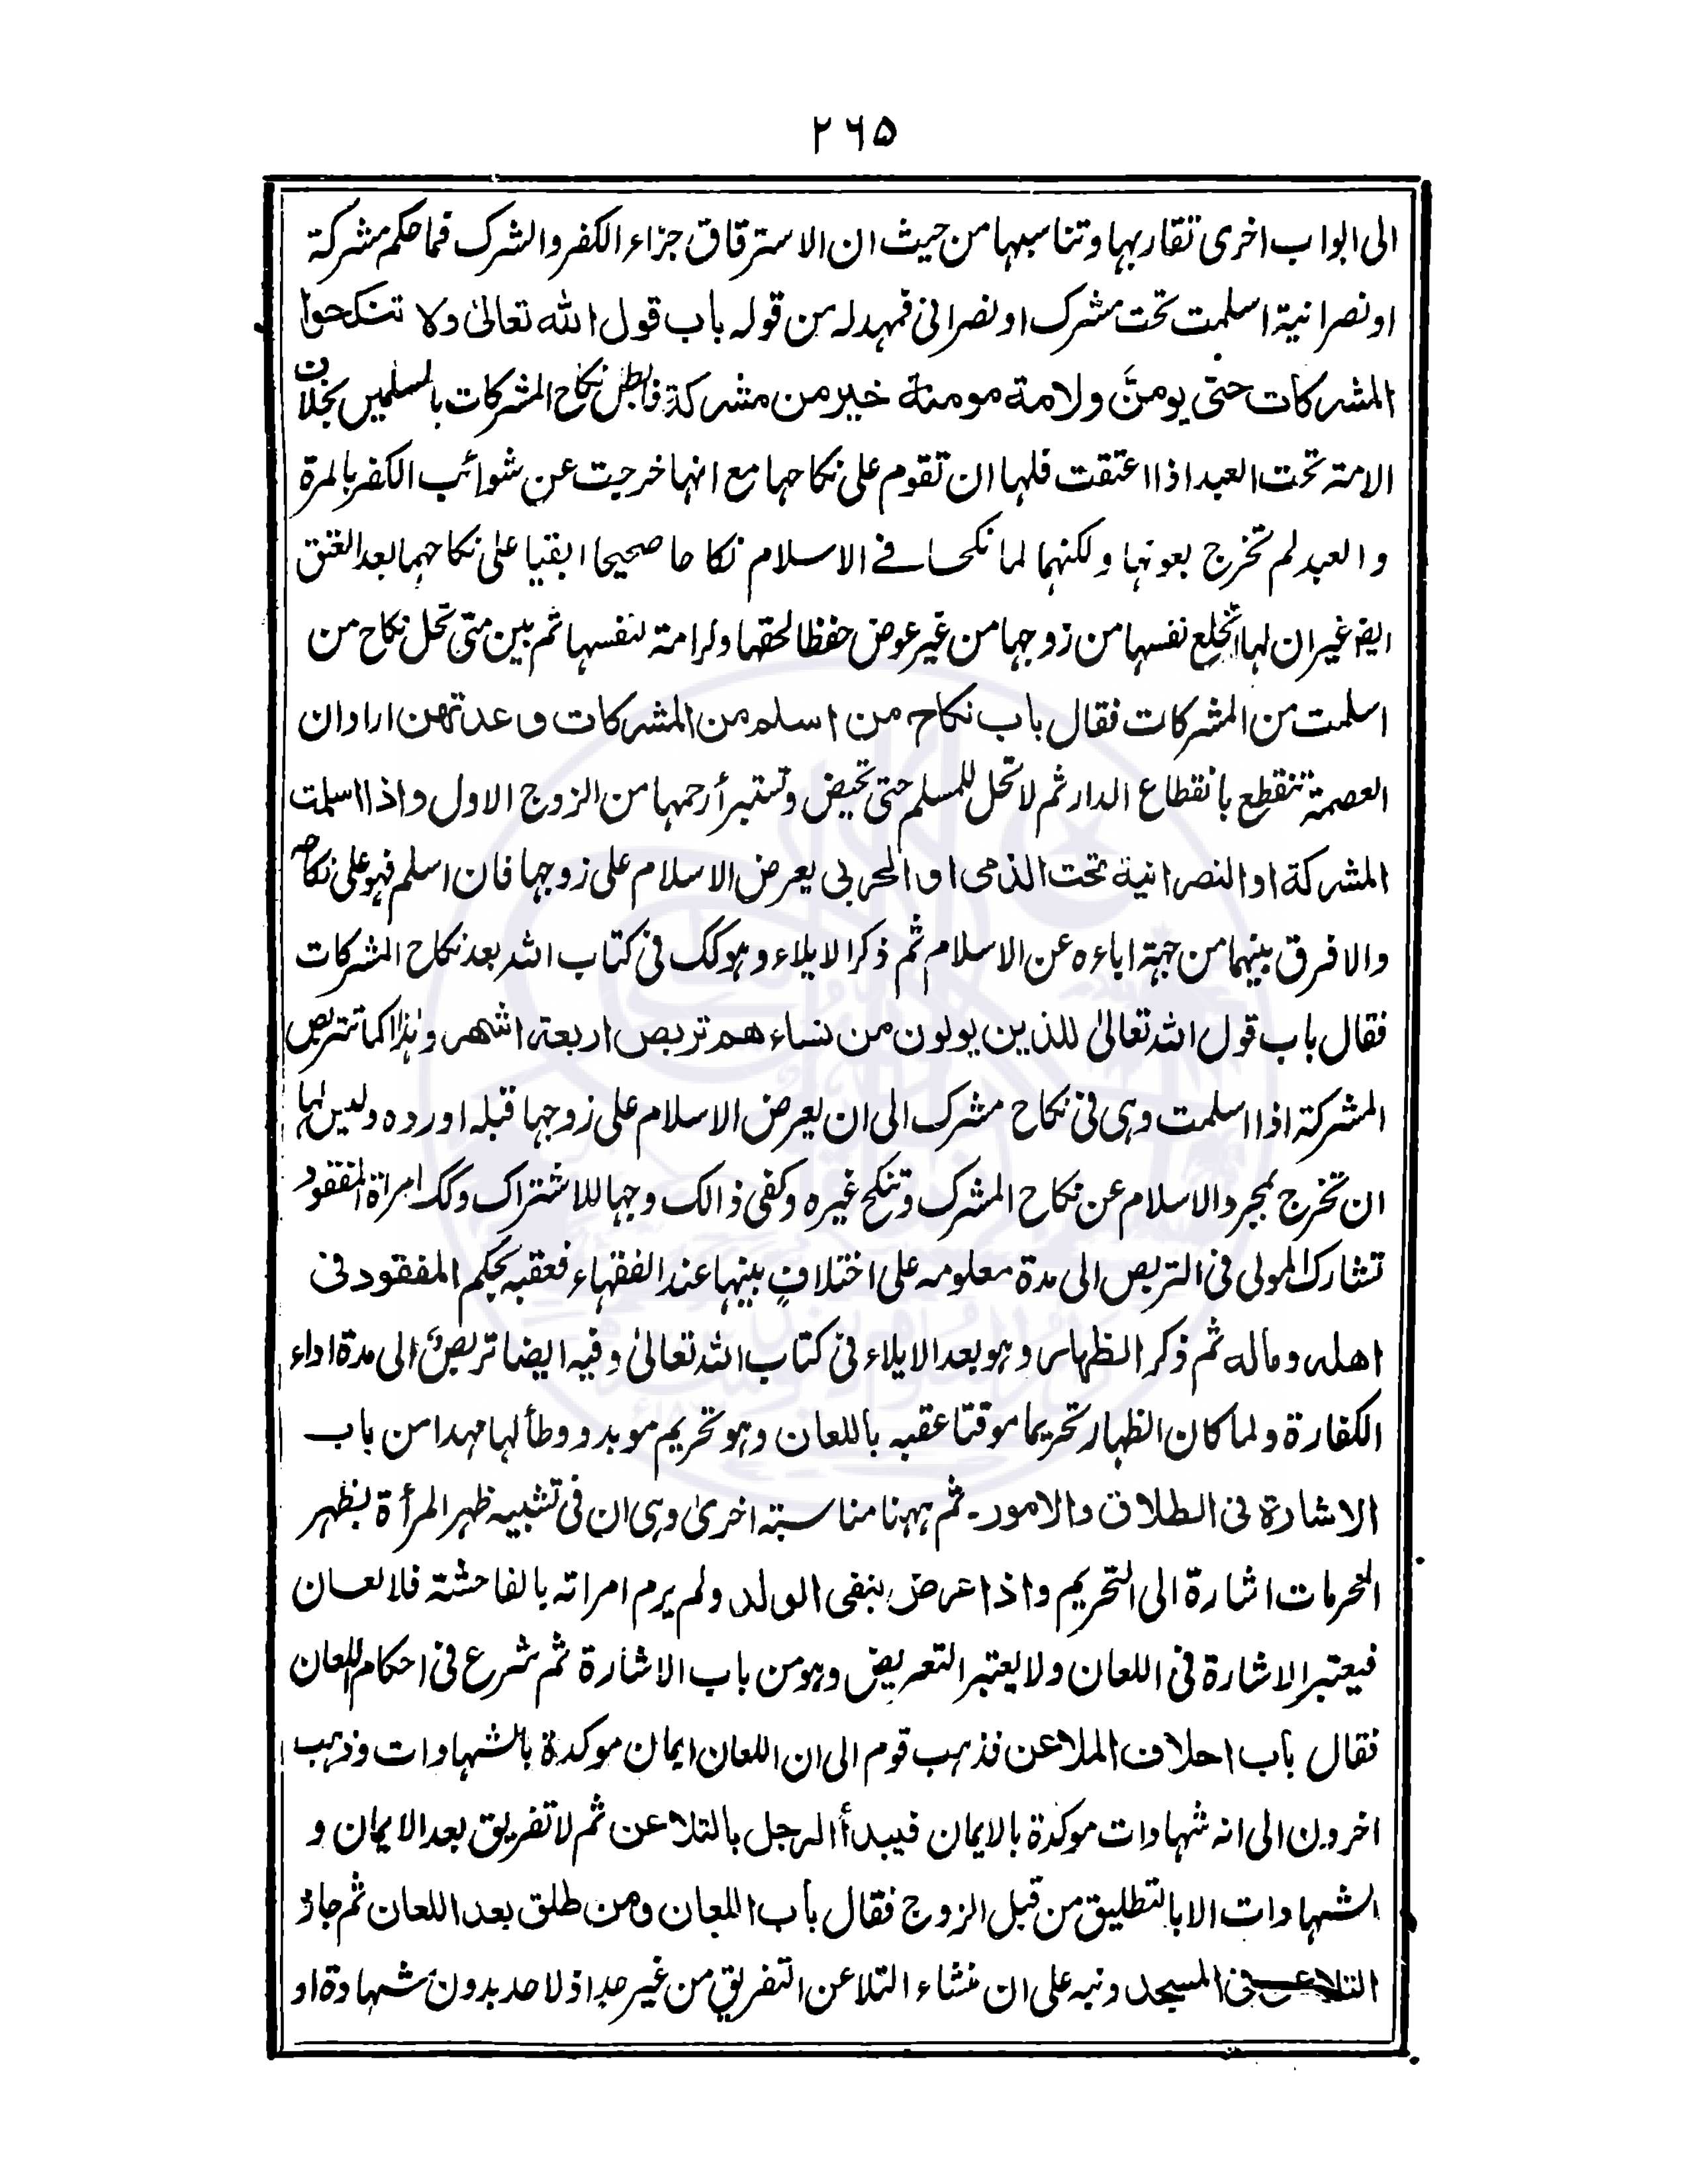 ۲۶۵
الی ابواب اخری تقاربہا وتناسبہا من حیث ان الاسترقاق جزاء الکفر والشرک فما حکم مشرکۃ
او نصرانیۃ اسلمت تحت مشرک او نصرانی فمہد لہ من قولہ باب قول اللہ تعالیٰ ولا تنکحوا
المشرکات حتی یومنَّ ولامۃ مومنۃ خیر من مشرکۃ فابطل نکاح المشرکات بالمسلمین بخلاف
الامتہ تحت العبد اذا اعتقت فلہا ان تقوم علی نکاحہا مع انہا خرجت عن شوائب الکفر بالمرۃ
والعبد لم تخرج بعونہا ولکنہما لما نکحا فے الاسلام نکاحا صحیحا ابقیا علی نکاحہما بعد العتق
ایضا غیر ان لہا تخلع نفسہا من زوجہا من غیر عوض حفظا لحقہا وکرامۃ لنفسہا ثم بین متی تحل نکاح من
اسلمت من المشرکات فقال باب نکاح من اسلم من المشرکات وعدتہن اراد ان
العصمۃ تنقطع بانقطاع الدار ثم لا تحل للمسلم حتی تحیض وتستبرأ رحمہا من الزوج الاول واذا اسلمت
المشرکۃ او النصرانیۃ تحت الذمی او الحربی یعرض الاسلام علی زوجہا فان اسلم فہو علی نکاحہ
والا فرق بینہما من جہۃ اباءہ عن الاسلام ثم ذکر الایلاء وہو کک فی کتاب اللہ بعد نکاح المشرکات
فقال باب قول اللہ تعالیٰ للذین یولون من نساءھم تربص اربعۃ اشھر وہذا کما تتربص
المشرکۃ اذا اسلمت وہی فی نکاح مشرک الی ان یعرض الاسلام علی زوجہا قبلہ او ردہ ولیس لہا
ان تخرج بمجرد الاسلام عن نکاح المشرک وتنکح غیرہ وکفی ذالک وجہا للاشتراک وکک امراۃ المفقود
تشارک المولی فی التربص الی مدۃ معلومہ علی اختلافٍ بینہا عند الفقہاء فعقبہ بحکم المفقود فی
اھلہ ومالہ ثم ذکر الظہار وہو بعد الایلاء فی کتاب اللہ تعالیٰ وفیہ ایضا تربص الی مدۃ اداء
الکفارۃ ولما کان الظہار تحریما موقتا عقبہ باللعان وہو تحریم موبد ووطأ لہا مہدا من باب
الاشارۃ فی الطلاق والامور۔ ثم ہہنا مناسبتہ اخریٰ وہی ان فی تشبیہ ظہر المرأۃ بظہر
المحرمات اشارۃ الی التحریم واذا عرض بنفی الولد ولم یرم امراتہ بالفاحشتہ فلا لعان
فیعتبر الاشارۃ فی اللعان ولا یعتبر التعریض وہو من باب الاشارۃ ثم شرع فی احکام اللعان
فقال باب احلاف الملاعن فذہب قوم الی ان اللعان ایمان موکدۃ بالشہادات وذہب
اخرون الی انہ شہادات موکدۃ بالایمان فیبدأ الرجل بالتلاعن ثم لا تفریق بعد الایمان و
الشہادات الا بالتطلیق من قبل الزوج فقال باب اللعان ومن طلق بعد اللعان ثم جاز
التلاعن فی المسجد ونبہ علی ان منشاء التلاعن التفریق من غیر حد اذ لا حد بدون شہادۃ او